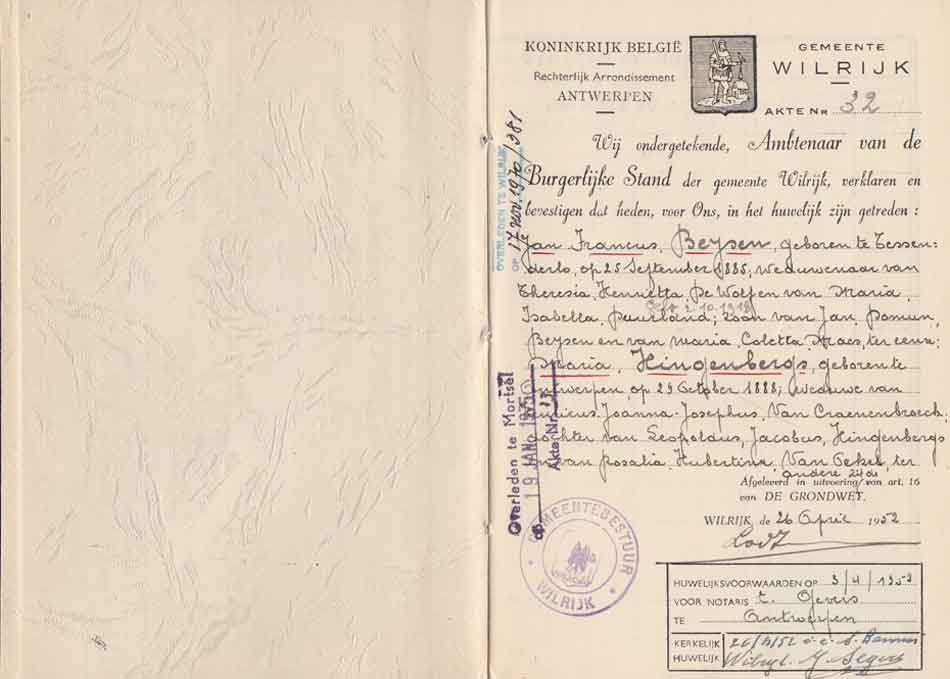 KONINKRIJK BELGIË
Rechterlijk Arrondissement
ANTWERPEN
GEMEENTE
WILRIJK
AKTE NR 32
Wij ondergetekende, Ambtenaar van de
Burgerlijke Stand der gemeente Wilrijk, verklaren en
bevestigen dat heden, voor Ons, in het huwelijk zijn getreden :
Jan Francus, Beysen, geboren te Tessen-
derlo, op 25 September 1885; weduwenaar van
Theresia, Henrietta, De Wolf en van Maria,
Isabella, zoon van Jan,
Beysen en van Maria, Coletta, Maes, ter eenre
Maria, Hingenbergs, geboren te
Antwerpen, op 29 October 1888; weduwe van
Joanna-Josephus, Van Craenenbroeck,
dochter van Leopoldus, Jacobus, Hingenbergs
en van Rosalia, Hubertina, Van Oekel, ter
andere zijde
Afgeleverd in uitvoering van art. 16
van DE GRONDWET.
WILRIJK, de 26 April 1952
HUWELIJKSVOORWAARDEN OP 3/4/1952
VOOR NOTARIS
TE Antwerpen
KERKELIJK
HUWELIJK
OVERLEDEN TE WILRIJK
OP 17 NOV. 1970/381
Overleden te Mortsel
op 19 JAN. 1975
Akte Nr. 13
GEMEENTEBESTUUR
WILRIJK